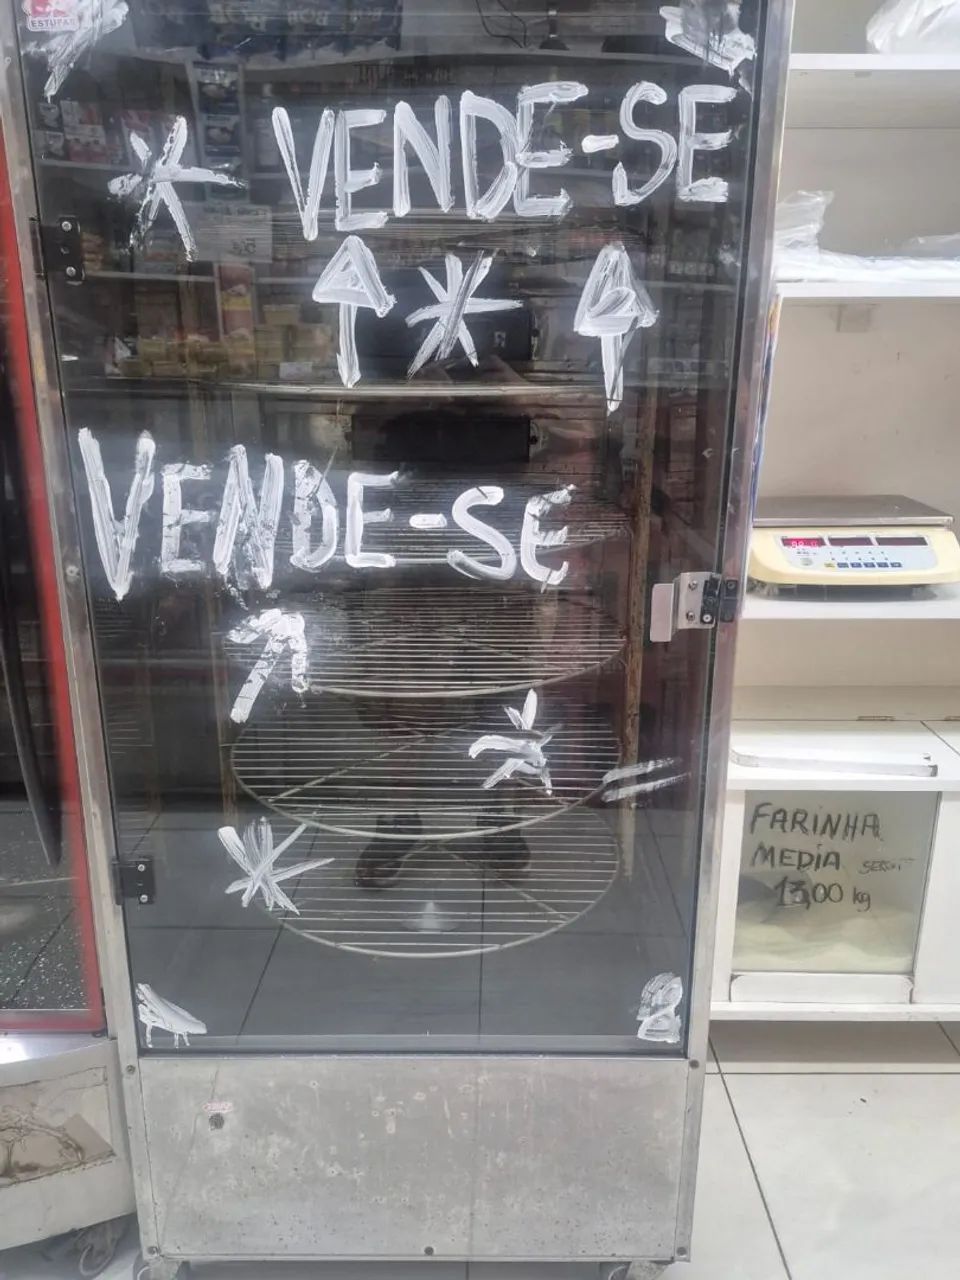 ESTUFAS
VENDE-SE
VENDE-SE
FARINHA
MEDIA
13,00 kg